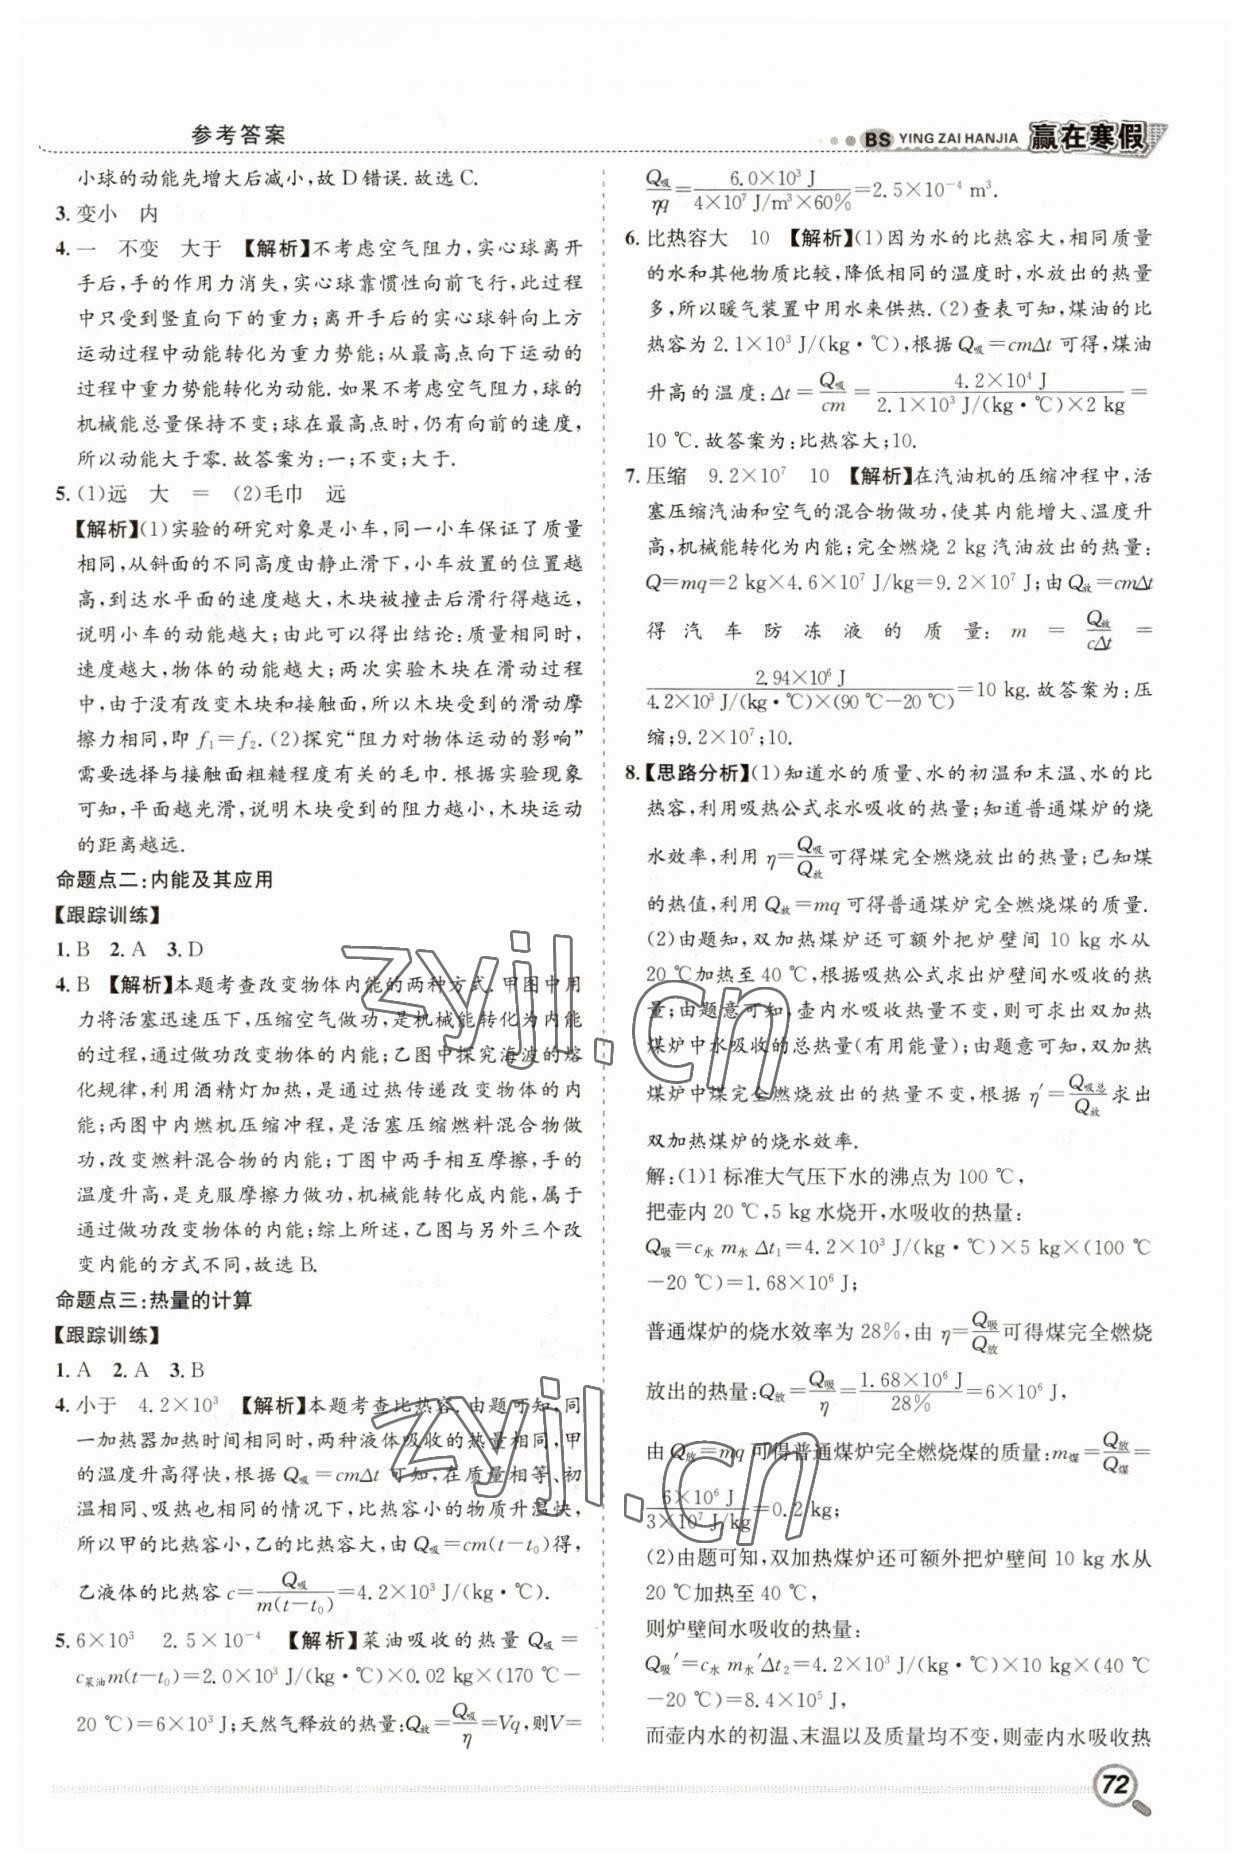 参考答案
BS YING ZAI HANJIA 赢在寒假
小球的动能先增大后减小,故 D 错误.故选 C.
3. 变小 内
4. 一 不变 大于 【解析】不考虑空气阻力,实心球离开
手后,手的作用力消失,实心球靠惯性向前飞行,此过程
中只受到竖直向下的重力;离开手后的实心球斜向上方
运动过程中动能转化为重力势能;从最高点向下运动的
过程中重力势能转化为动能.如果不考虑空气阻力,球的
机械能总量保持不变;球在最高点时,仍有向前的速度,
所以动能大于零.故答案为:一;不变;大于.
5. (1)远 大 = (2)毛巾 远
【解析】(1)实验的研究对象是小车,同一小车保证了质量
相同,从斜面的不同高度由静止滑下,小车放置的位置越
高,到达水平面的速度越大,木块被撞击后滑行得越远,
说明小车的动能越大;由此可以得出结论:质量相同时,
速度越大,物体的动能越大;两次实验木块在滑动过程
中,由于没有改变木块和接触面,所以木块受到的滑动摩
擦力相同,即 f₁=f₂.(2)探究“阻力对物体运动的影响”
需要选择与接触面粗糙程度有关的毛巾.根据实验现象
可知,平面越光滑,说明木块受到的阻力越小,木块运动
的距离越远.
命题点二:内能及其应用
【跟踪训练】
1. B 2. A 3. D
4. B 【解析】本题考查改变物体内能的两种方式.甲图中用
力将活塞迅速压下,压缩空气做功,是机械能转化为内能
的过程,通过做功改变物体的内能;乙图中探究海波的熔
化规律,利用酒精灯加热,是通过热传递改变物体的内
能;丙图中内燃机压缩冲程,是活塞压缩燃料混合物做
功,改变燃料混合物的内能;丁图中两手相互摩擦,手的
温度升高,是克服摩擦力做功,机械能转化成内能,属于
通过做功改变物体的内能;综上所述,乙图与另外三个改
变内能的方式不同,故选 B.
命题点三:热量的计算
【跟踪训练】
1. A 2. A 3. B
4. 小于 4.2×10³ 【解析】本题考查比热容.由题可知,同
一加热器加热时间相同时,两种液体吸收的热量相同,甲
的温度升高得快,根据 Q吸=cmΔt 可知,在质量相等、初
温相同、吸热也相同的情况下,比热容小的物质升温快,
所以甲的比热容小,乙的比热容大,由 Q吸=cm(t−t₀)得,
乙液体的比热容 c=Q吸/m(t−t₀)=4.2×10³ J/(kg·℃).
5. 6×10³ 2.5×10⁻⁴ 【解析】菜油吸收的热量 Q吸=
c菜油m(t−t₀)=2.0×10³ J/(kg·℃)×0.02 kg×(170 ℃−
20 ℃)=6×10³ J;天然气释放的热量:Q放=Q吸/η=Vq,则V=
Q吸/ηq=6.0×10³ J/4×10⁷ J/m³×60%=2.5×10⁻⁴ m³.
6. 比热容大 10 【解析】(1)因为水的比热容大,相同质量
的水和其他物质比较,降低相同的温度时,水放出的热量
多,所以暖气装置中用水来供热.(2)查表可知,煤油的比
热容为 2.1×10³ J/(kg·℃),根据 Q吸=cmΔt 可得,煤油
升高的温度:Δt=Q吸/cm=4.2×10⁴ J/2.1×10³ J/(kg·℃)×2 kg=
10 ℃.故答案为:比热容大;10.
7. 压缩 9.2×10⁷ 10 【解析】在汽油机的压缩冲程中,活
塞压缩汽油和空气的混合物做功,使其内能增大、温度升
高,机械能转化为内能;完全燃烧 2 kg 汽油放出的热量:
Q=mq=2 kg×4.6×10⁷ J/kg=9.2×10⁷ J;由 Q放=cmΔt
得汽车防冻液的质量:m=Q放/cΔt=
2.94×10⁶ J/4.2×10³ J/(kg·℃)×(90 ℃−20 ℃)=10 kg.故答案为:压
缩;9.2×10⁷;10.
8. 【思路分析】(1)知道水的质量、水的初温和末温、水的比
热容,利用吸热公式求水吸收的热量;知道普通煤炉的烧
水效率,利用 η=Q吸/Q放可得煤完全燃烧放出的热量;已知煤
的热值,利用 Q放=mq 可得普通煤炉完全燃烧煤的质量.
(2)由题知,双加热煤炉还可额外把炉壁间 10 kg 水从
20 ℃加热至 40 ℃,根据吸热公式求出炉壁间水吸收的热
量;由题意可知,壶内水吸收热量不变,则可求出双加热
煤炉中水吸收的总热量(有用能量);由题意可知,双加热
煤炉中煤完全燃烧放出的热量不变,根据 η′=Q吸总/Q放求出
双加热煤炉的烧水效率.
解:(1)1 标准大气压下水的沸点为 100 ℃,
把壶内 20 ℃,5 kg 水烧开,水吸收的热量:
Q吸=c水 m水 Δt₁=4.2×10³ J/(kg·℃)×5 kg×(100 ℃
−20 ℃)=1.68×10⁶ J;
普通煤炉的烧水效率为 28%,由 η=Q吸/Q放可得煤完全燃烧
放出的热量:Q放=Q吸/η=1.68×10⁶ J/28%=6×10⁶ J,
由 Q放=mq 可得普通煤炉完全燃烧煤的质量:m煤=Q放/Q煤=
6×10⁶ J/3×10⁷ J/kg=0.2 kg;
(2)由题可知,双加热煤炉还可额外把炉壁间 10 kg 水从
20 ℃加热至 40 ℃,
则炉壁间水吸收的热量:
Q吸′=c水 m水′Δt₂=4.2×10³ J/(kg·℃)×10 kg×(40 ℃
−20 ℃)=8.4×10⁵ J,
而壶内水的初温、末温以及质量均不变,则壶内水吸收热
72
zyjl.cn
zyjl.cn